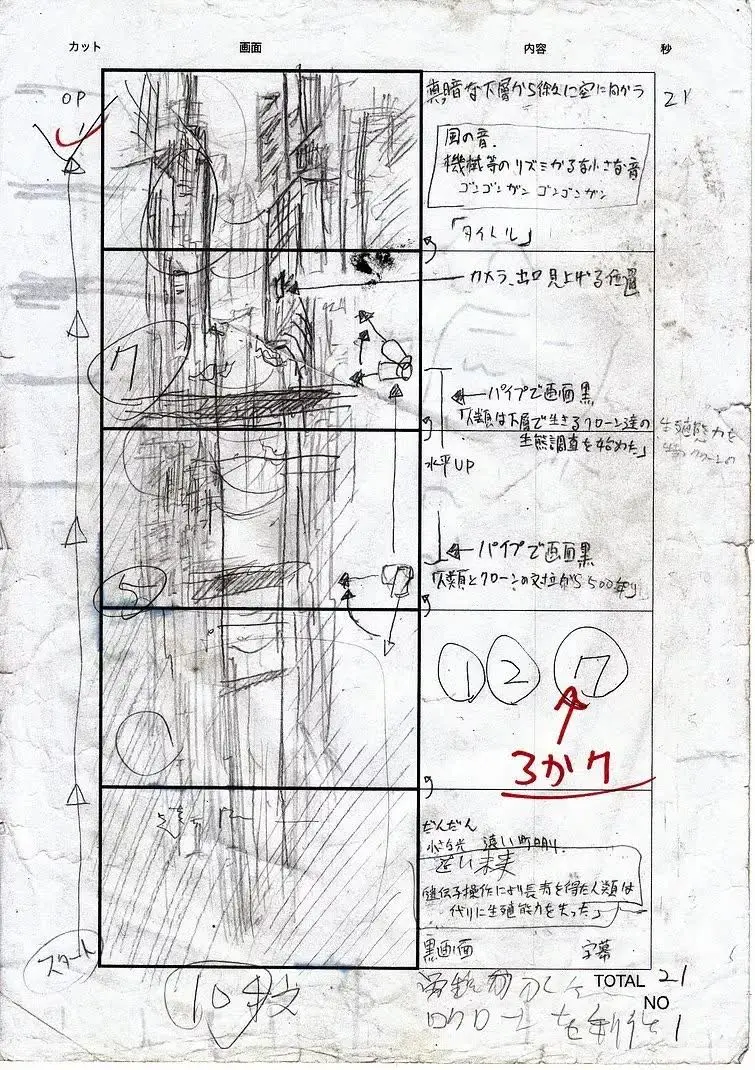 カット 画面 内容 秒
OP
真暗な下層から徐々に空に向かう
21
風の音.
機械等のリズミカルな小さな音
ゴンゴンガン ゴンゴンガン
「タイトル」
カメラ、出口見上げる位置
7
パイプで画面黒
「人類は下層で生きるクローン達の
生態調査を始めた」
生殖能力を
水平UP
パイプで画面黒
「人類とクローンの対立から500年」
5
1 2 7
3か7
だんだん
小さな光 遠い町明り.
遠い未来
遺伝子操作により長寿を得た人類は
代りに生殖能力を失った」
黒画面 字幕
スタート
10枚
TOTAL 21
NO 1